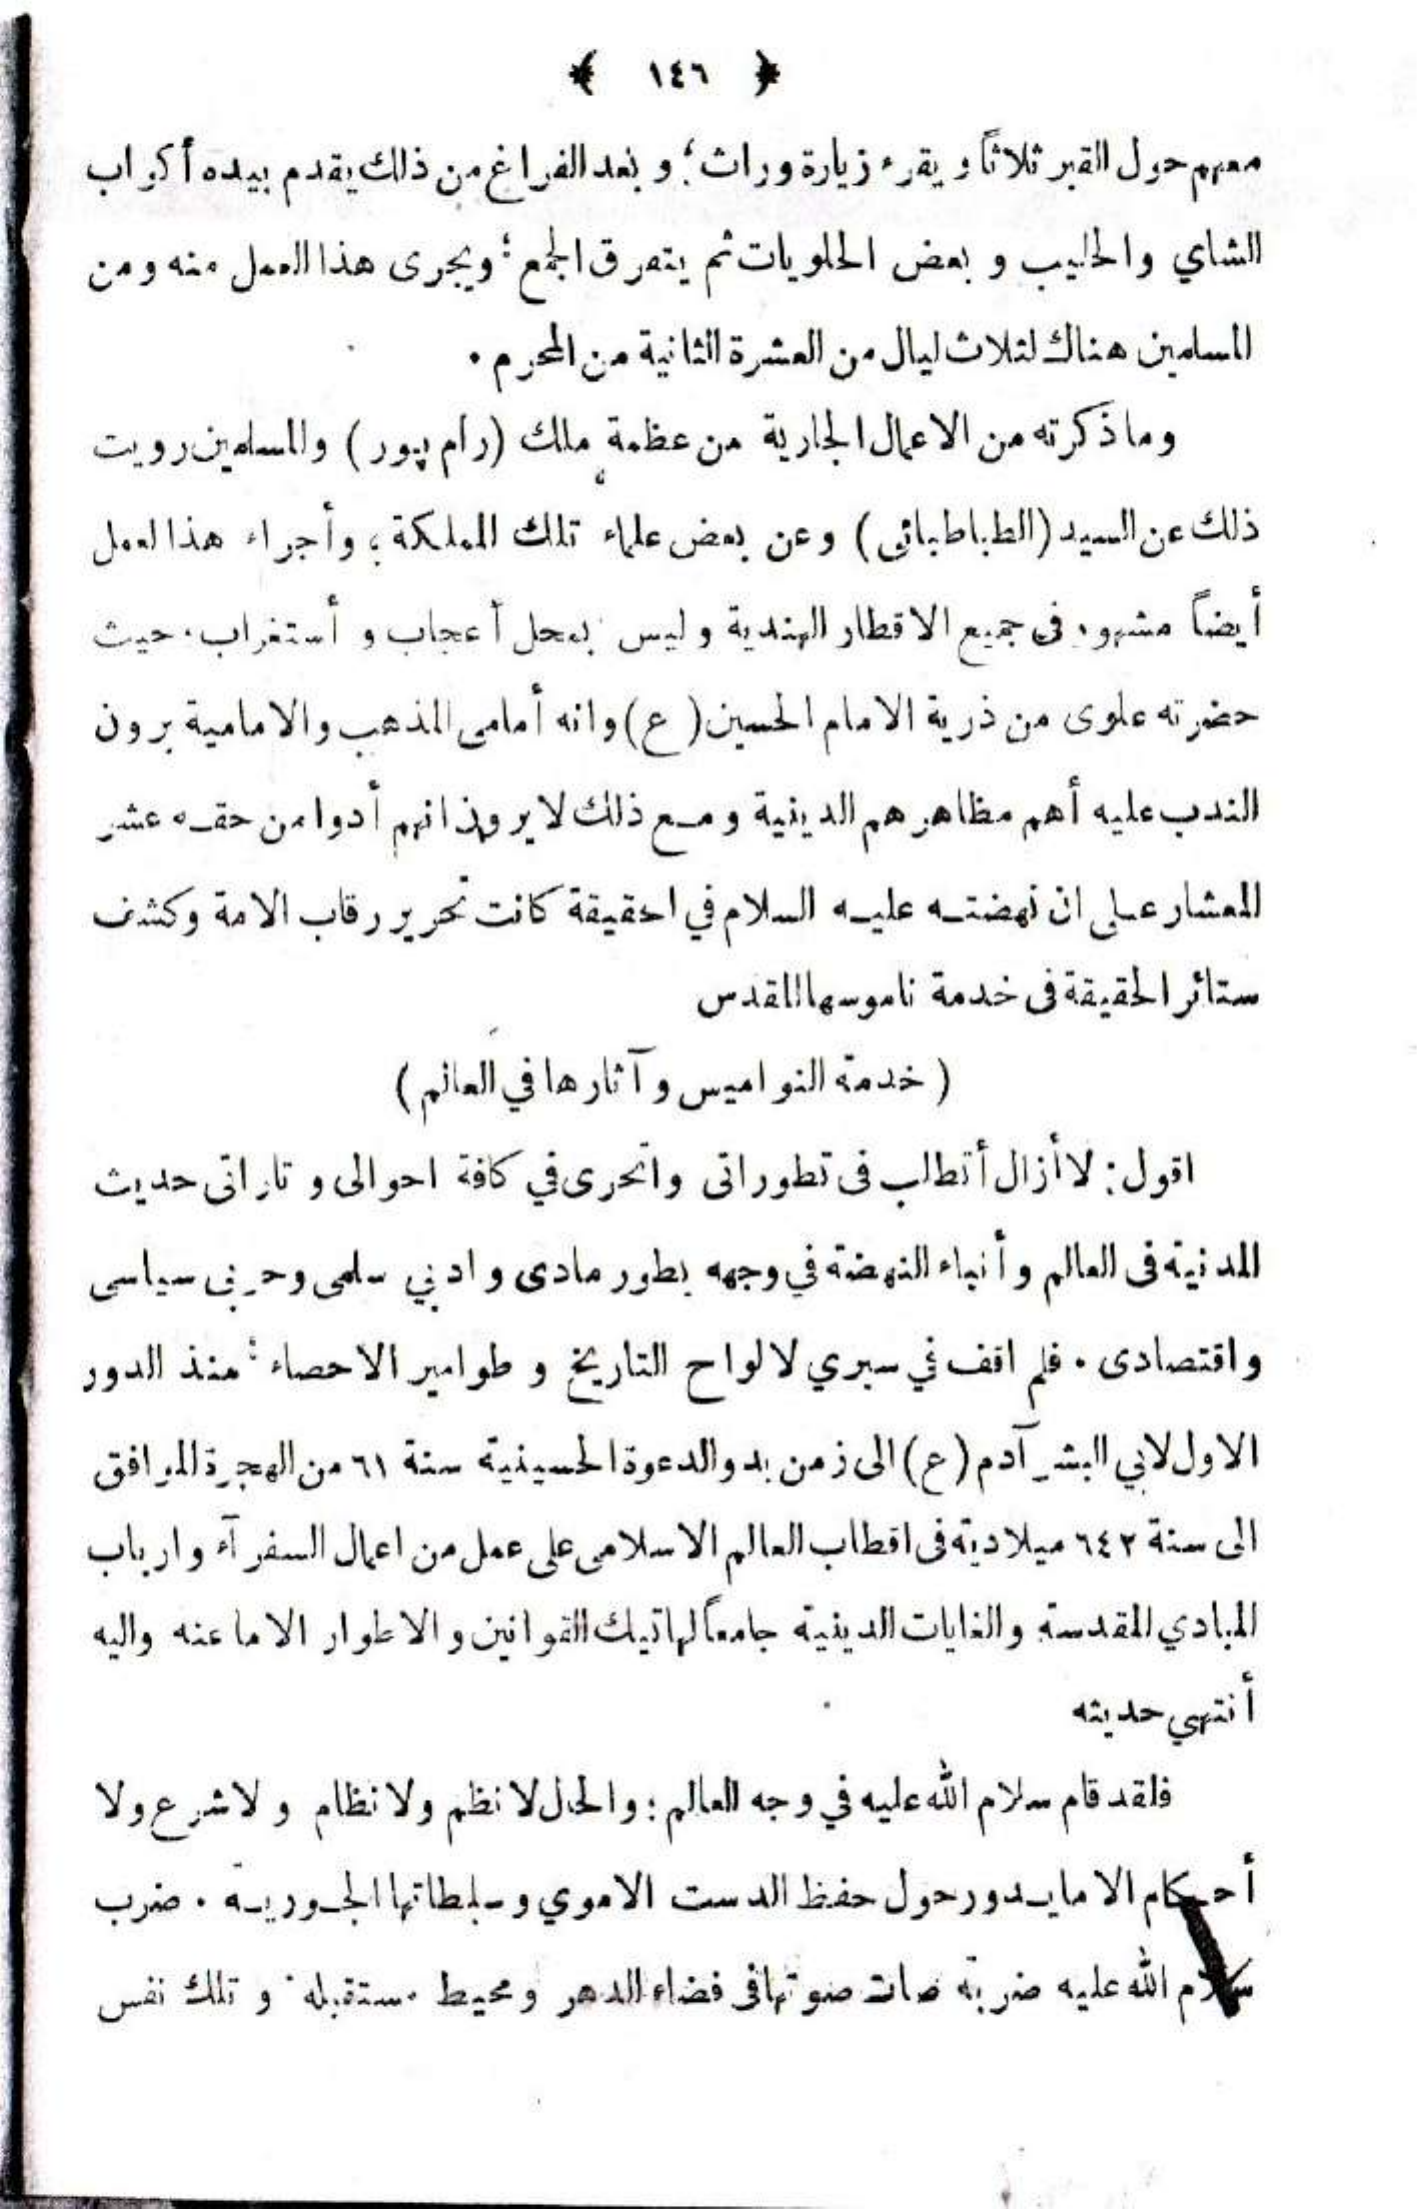 ﴿ ١٤٦ ﴾
معهم حول القبر ثلاثاً و يقرء زيارة وراث؛ و بعد الفراغ من ذلك يقدم بيده أكواب
الشاي والحليب و بعض الحلويات ثم يتفرق الجمع؛ ويجرى هذا العمل منه ومن
المسلمين هناك لثلاث ليال من العشرة الثانية من المحرم .
وما ذكرته من الاعمال الجارية من عظمة ملك (رام پور) والمسلمين رويت
ذلك عن السيد (الطباطبائى) وعن بعض علماء تلك المملكة؛ وأجراء هذا لعمل
أيضاً مشهور فى جميع الاقطار الهندية وليس بمحل أعجاب و أستغراب. حيث
حضرته علوى من ذرية الامام الحسين (ع) وانه أمامى المذهب والامامية يرون
الندب عليه أهم مظاهرهم الدينية ومع ذلك لا يرون انهم أدوا من حقه عشر
المعشار على ان نهضته عليه السلام في الحقيقة كانت تحرير رقاب الامة وكشف
ستائر الحقيقة فى خدمة ناموسها المقدس
( خدمة النواميس و آثارها في العالم )
اقول: لا أزال أتطلب فى تطوراتى واتحرى في كافة احوالى و تاراتى حديث
المدنية فى العالم و أنباء النهضة في وجهه بطور مادى و ادبي سلمى وحربى سياسى
واقتصادى . فلم اقف في سبري لالواح التاريخ و طوامير الاحصاء؛ منذ الدور
الاول لابي البشر آدم (ع) الى زمن بدو الدعوة الحسينية سنة ٦١ من الهجرة الموافق
الى سنة ٦٤٢ ميلادية فى اقطاب العالم الاسلامى على عمل من اعمال السفرآء وارباب
المبادي المقدسة والغايات الدينية جامعاً لهاتيك القوانين والاطوار الا ما عنه واليه
أنتهي حديثه
فلقد قام سلام الله عليه في وجه العالم؛ والحال لا نظم ولا نظام و لا شرع ولا
أحكام الا ما يدور حول حفظ الدست الاموي وسلطاتها الجورية . ضرب
سلام الله عليه ضربة صات صوتها فى فضاء الدهر ومحيط مستقبله و تلك نفس